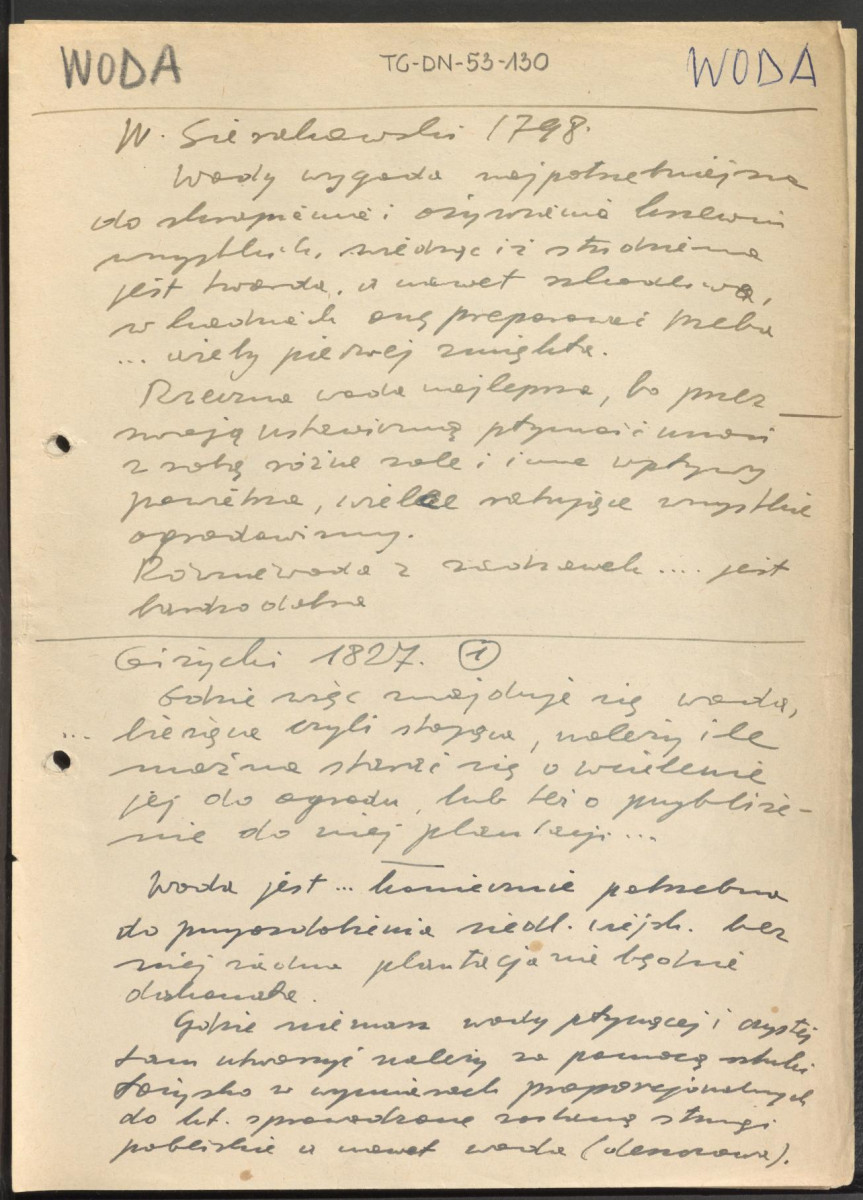 WODA TG-DN-53-130 WODA
W. Sierakowski 1798.
Wody wygoda najpotrzebniejsza
do skropienia i ożywienia krzewin
wszystkich, wiedząc iż studzienna
jest twarda, a nawet szkodliwa,
w kadziach onę preparować trzeba
... ażeby pierwej zmiękła.
Rzeczna woda najlepsza, bo przez
swoją ustawiczną płynność unosi
z sobą różne sole i inne wpływy
powietrza, wielce ratujące wszystkie
ogrodowizny.
Równie woda z sadzawek .... jest
bardzo dobra
Giżycki 1827. 1
Gdzie więc znajduje się woda,
... bieżąca czyli stojąca, należy ile
można starać się o wcielenie
jej do ogrodu, lub też o przybliże-
nie do niej plantacji ...
Woda jest ... koniecznie potrzebna
do przyozdobienia siedl. wiejsk. bez
niej żadna plantacja nie będzie
doskonała.
Gdzie niemasz wody płynącej i czystej
tam utworzyć należy za pomocą sztuki
łożysko w wymiarach proporcjonalnych
do kt. sprowadzone zostaną strugi
pobliskie a nawet woda (deszczowa).